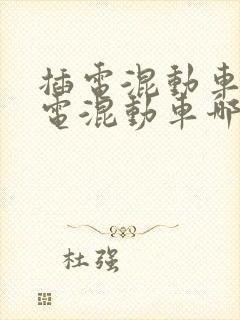 插電混動車
電混動車哪
杜强